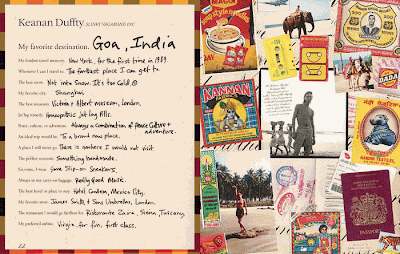 Keenan Duffty SLINKY VAGABOND INC.
My favorite destination. Goa, India
My fondest travel memory. New York, for the first time in 1989.
Whenever I can I travel to. The farthest place I can get to.
The best snow. Not into Snow. It's too Cold
My favorite city. Shanghai
The best museum. Victoria & Albert museum, London.
Jet lag remedy. Homeopathic Jet lag Pills.
Peace, culture, or adventure. Always a combination of Peace Culture + adventure.
An ideal trip would be. To a brand new place.
A place I will never go. There is nowhere I would not visit
The perfect souvenir. Something handmade.
En route, I wear. Some Slip-on Sneakers.
Always in my carry-on luggage. Really Good Music.
The best hotel or place to stay. Hotel Condesa, Mexico City.
My favorite store. James Smith & Sons Umbrellas, London.
The restaurant I would go farthest for. Ristorante Zaira, Siena, Tuscany.
My preferred airline. Virgin, for fun, first class.
22
MAGGI
KANNAN
DADA